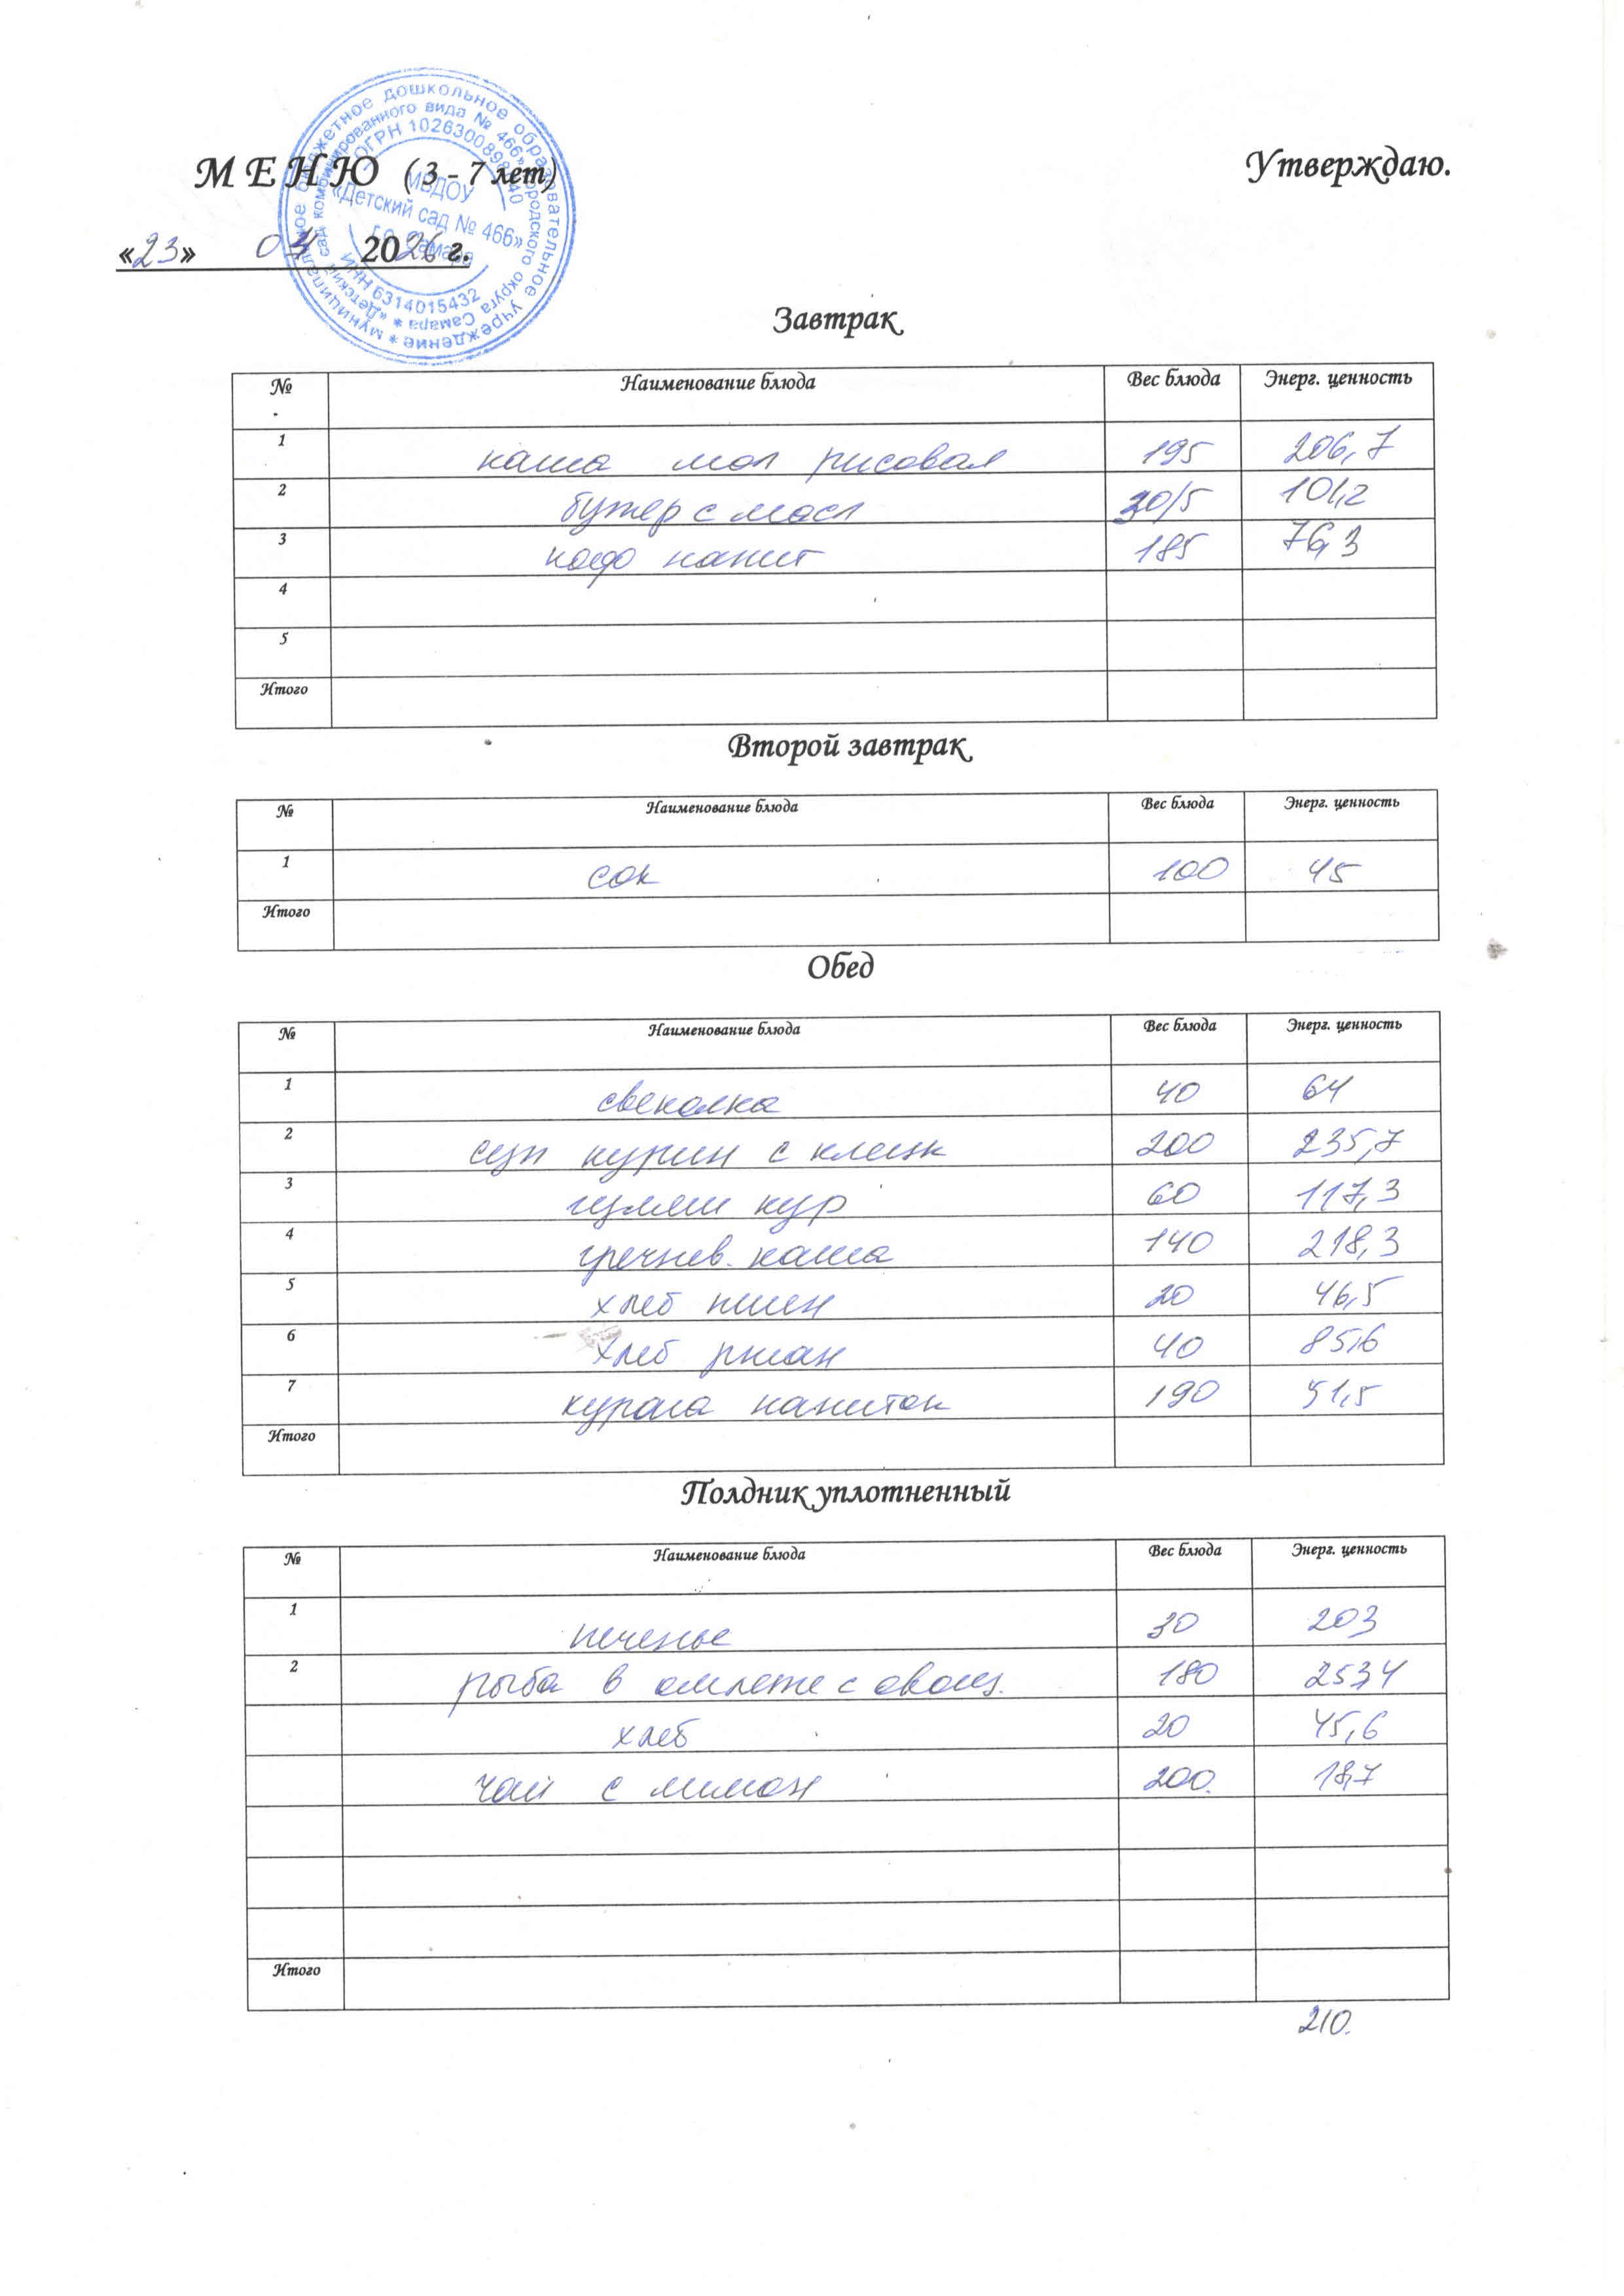 муниципальное бюджетное дошкольное образовательное учреждение
«Детский сад комбинированного вида № 466» городского округа Самара
ОГРН
МБДОУ
«Детский сад № 466»
г.о. Самара
ИНН 6314015432
МЕНЮ (3 - 7 лет)
Утверждаю.
«23» 04 2026 г.
Завтрак
№ Наименование блюда Вес блюда Энерг. ценность
1 каша мол рисовая 195 206,7
2 бутер с масл 30/5 101,2
3 кофе напит 185 76,3
4
5
Итого
Второй завтрак
№ Наименование блюда Вес блюда Энерг. ценность
1 сок 100 45
Итого
Обед
№ Наименование блюда Вес блюда Энерг. ценность
1 свеколка 40 64
2 суп курин с клецк 200 235,7
3 гуляш кур 60 117,3
4 гречнев. каша 140 218,3
5 хлеб пшен 20 46,5
6 хлеб ржан 40 85,6
7 курага напиток 190 51,5
Итого
Полдник уплотненный
№ Наименование блюда Вес блюда Энерг. ценность
1 печенье 30 203
2 рыба в омлете с овощ. 180 253,4
хлеб 20 45,6
чай с лимон 200. 18,7
Итого
210.